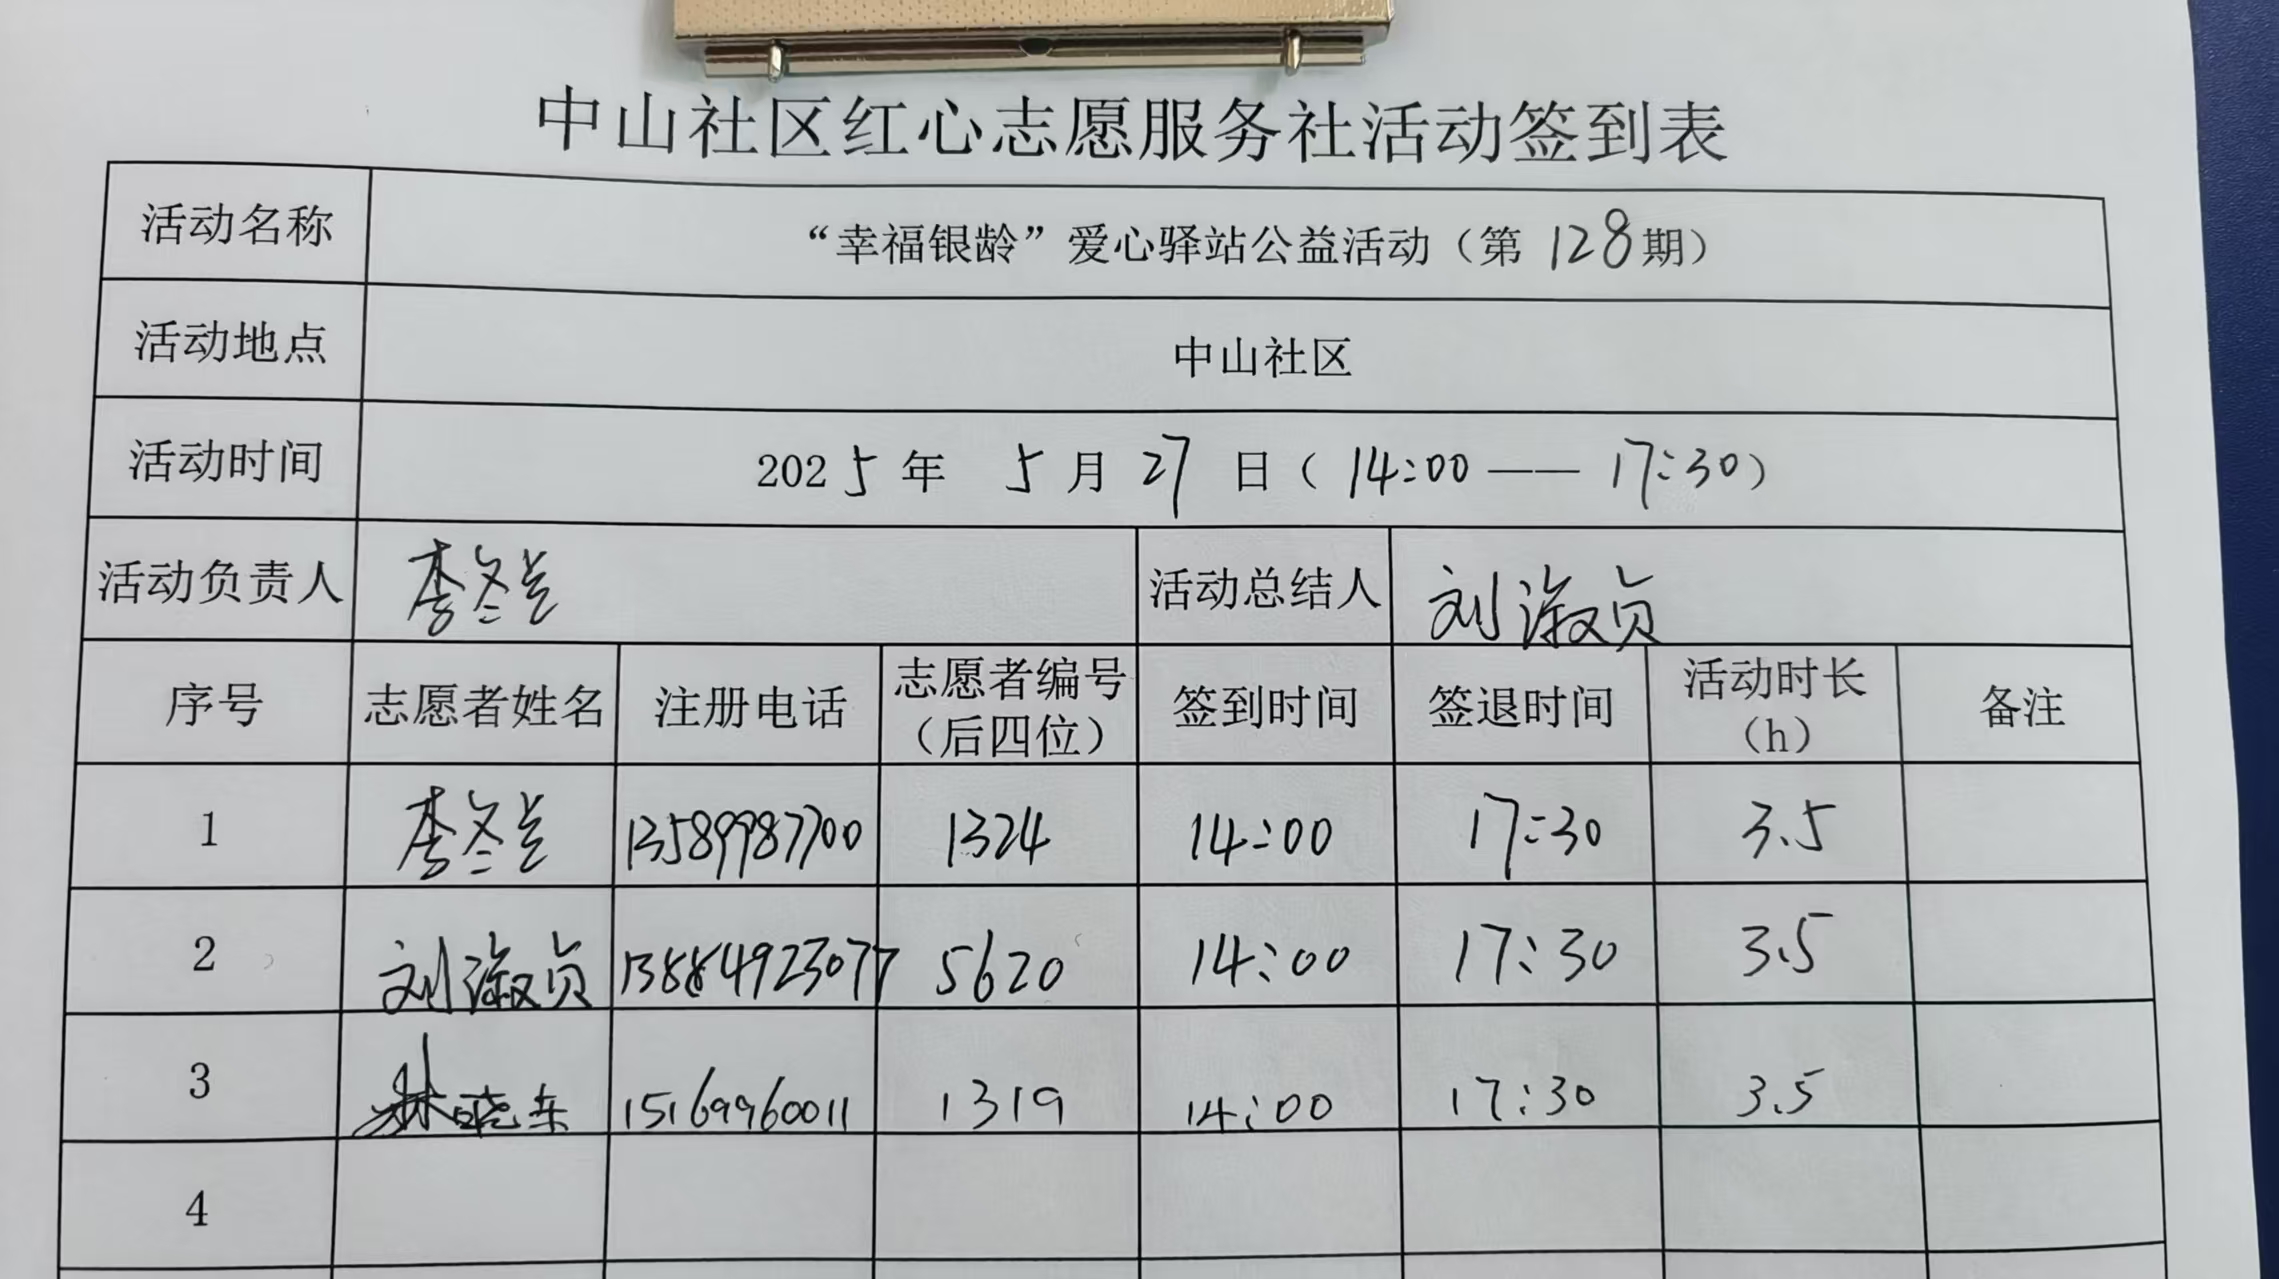 中山社区红心志愿服务社活动签到表
活动名称 “幸福银龄”爱心驿站公益活动（第 128 期）
活动地点 中山社区
活动时间 2025 年 5 月 27 日（14:00 —— 17:30）
活动负责人 李冬兰 活动总结人 刘淑贞
序号 志愿者姓名 注册电话 志愿者编号（后四位） 签到时间 签退时间 活动时长（h） 备注
1 李冬兰 13589987700 1324 14:00 17:30 3.5
2 刘淑贞 13884923077 5620 14:00 17:30 3.5
3 林晓东 15169960011 1319 14:00 17:30 3.5
4